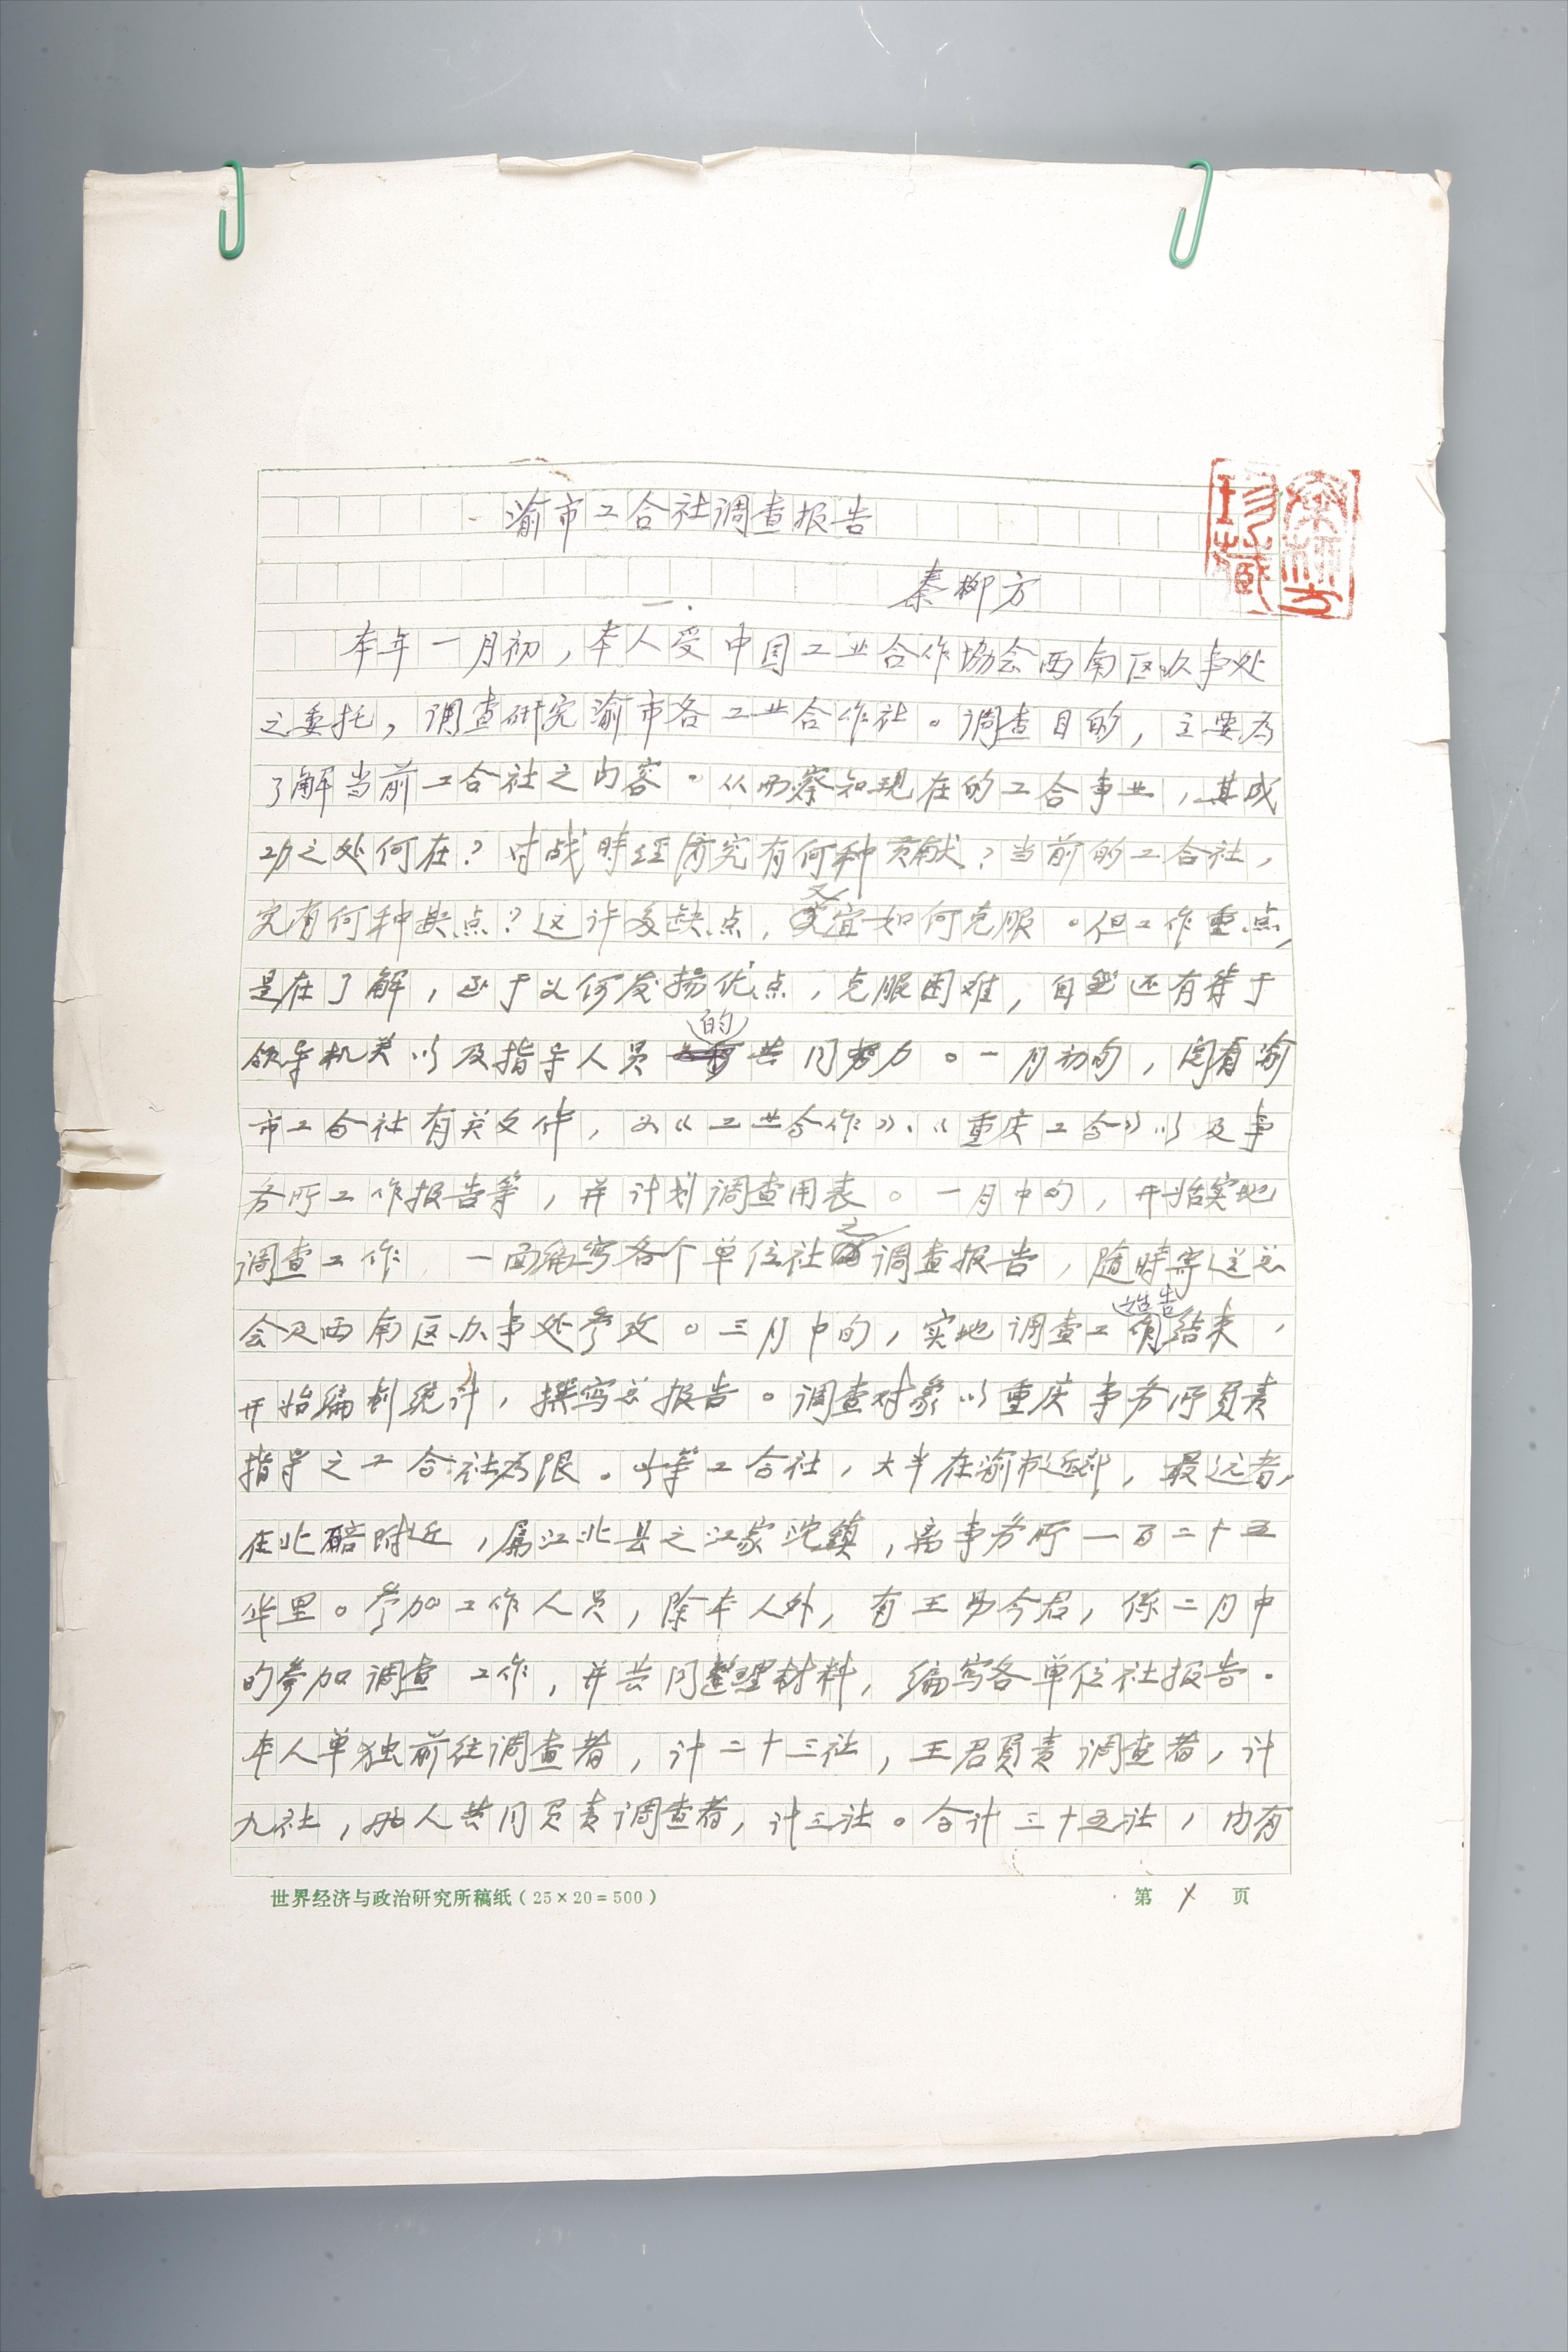 渝市工合社调查报告
秦柳方
一.
本年一月初，本人受中国工业合作协会西南区办事处
之委托，调查研究渝市各工业合作社。调查目的，主要为
了解当前工合社之内容。从而察知现在的工合事业，其成
功之处何在？对战时经济究有何种贡献？当前的工合社，
究有何种缺点？这许多缺点，又宜如何克服。但工作重点，
是在了解，至于如何发扬优点，克服困难，自然还有待于
领导机关以及指导人员的共同努力。一月初旬，阅有渝
市工合社有关文件，如《工业合作》、《重庆工合》以及事
务所工作报告等，并计划调查用表。一月中旬，开始实地
调查工作，一面编写各个单位社之调查报告，随时寄送总
会及西南区办事处参考。三月中旬，实地调查工作结束，
开始编制统计，撰写总报告。调查对象以重庆事务所负责
指导之工合社为限。此等工合社，大半在渝市近郊，最远者，
在北碚附近，属江北县之江家沱镇，离事务所一百二十五
华里。参加工作人员，除本人外，有王君，系二月中
旬参加调查工作，并共同整理材料，编写各单位社报告。
本人单独前往调查者，计二十三社，王君负责调查者，计
九社，两人共同负责调查者，计三社。合计三十五社，内有
世界经济与政治研究所稿纸（25×20=500）
第 1 页
秦柳方
珍藏